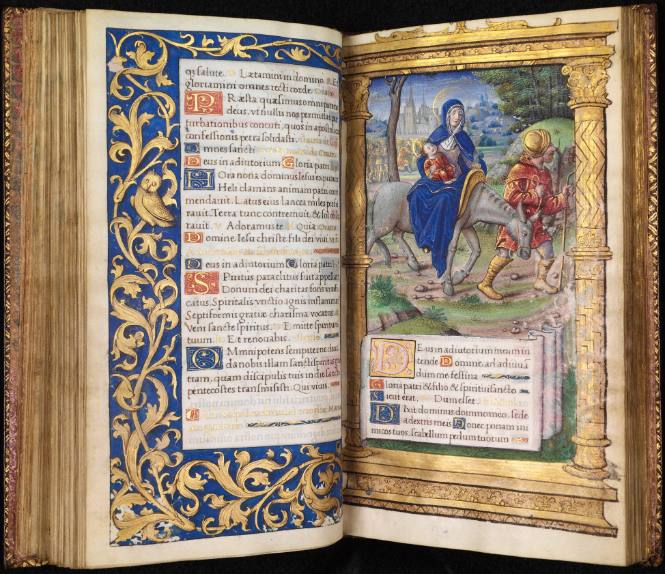 qi salute. Lætamini in domino &
gloriamini omnes recti corde.
Præsta quæsumus omnipotens
deus, vt nullis nos permittas per
turbationibus concuti, quos in apostolicæ
confessionis petra solidasti.
Omnes sancti
Deus in adiutorium Gloria patri
Hora nona dominus Iesus expirauit
Heli clamans animam patri com
mendauit. Latus eius lancea miles perfo
rauit. Terra tunc contremuit, & sol obscu
rauit. Adoramus te Quia
Domine Iesu christe fili dei viui
Deus in adiutorium Gloria patri
Spiritus paraclitus fuit appellatus
Donum dei charitas fons viuifi
catus. Spiritalis vnctio ignis inflammatus
Septiformis gratiæ charisma vocatus
Veni sancte spiritus. Emitte spiritum
tuum. Et renouabis.
Omnipotens sempiterne deus
da nobis illam sancti spiritus gra
tiam, quam discipulis tuis in die sancto
pentecostes transmisisti. Qui viuis
Deus in adiutorium meum in
tende Domine, ad adiuuan
dum me festina
Gloria patri & filio & spiritui sancto
Sicut erat. Dum esset
Dixit dominus domino meo, sede
a dextris meis Donec ponam ini
micos tuos, scabellum pedum tuorum